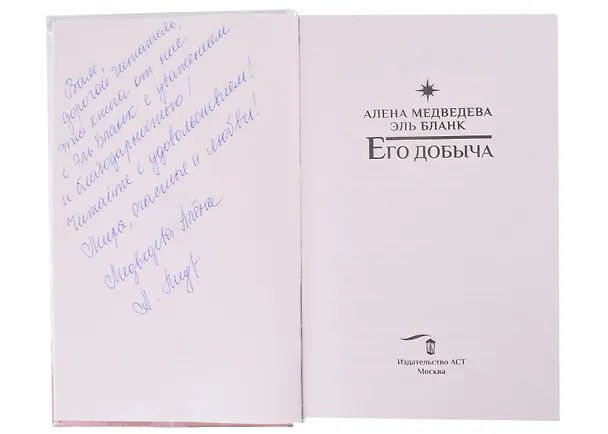 Вам,
дорогой читатель,
эта книга от нас
с Эль Бланк с уважением
и благодарностью!
Читайте с удовольствием!
Мира, счастья и любви!
Медведева Алёна
А.
АЛЕНА МЕДВЕДЕВА
ЭЛЬ БЛАНК
ЕГО ДОБЫЧА
Издательство АСТ
Москва